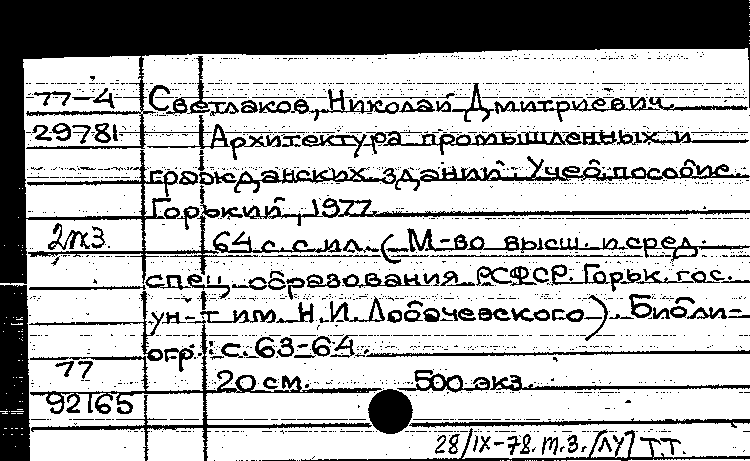 77-4 Светлаков, Николай Дмитриевич.
29781 Архитектура промышленных и
гражданских зданий. Учеб. пособие.
Горький, 1977.
2пкз 64 с. с ил. (М-во высш. и сред.
спец. образования РСФСР. Горьк. гос.
ун-т им. Н.И. Лобачевского). Библи-
огр.: с. 63-64.
77
20 см. 500 экз.
92165
28/IX-78. т.з. [ЛУ] Т.Т.